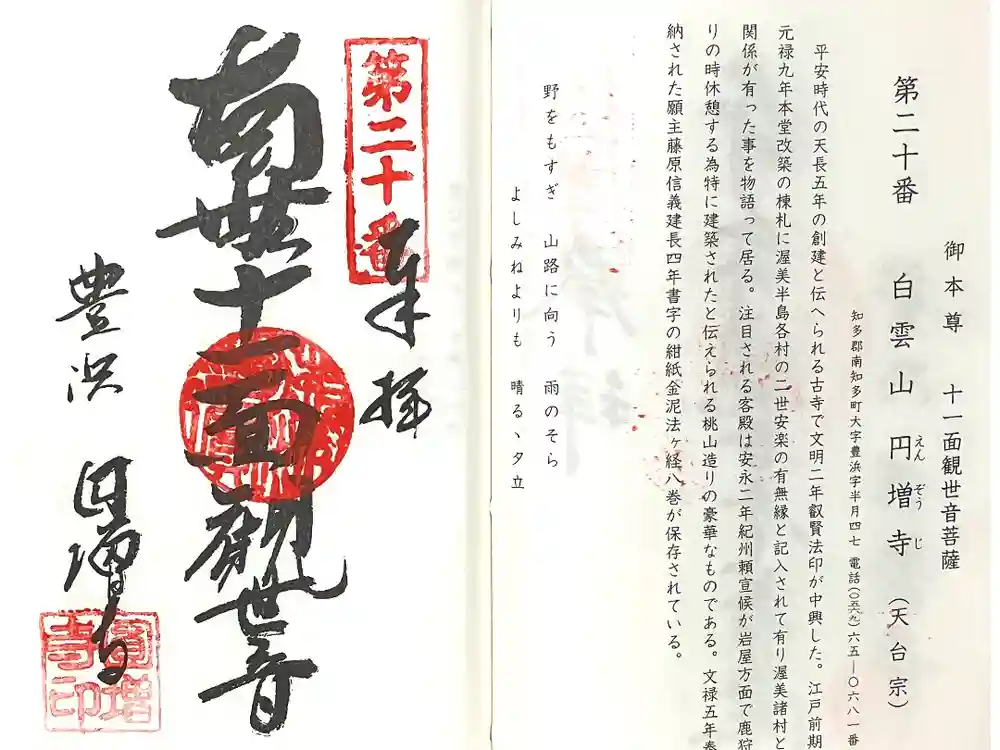 御本尊 十一面観世音菩薩
第二十番 白雲山 円増寺 (天台宗)
えんぞうじ
知多郡南知多町大字豊浜字半月四七 電話(〇五六九)六五―〇六八一番
平安時代の天長五年の創建と伝へられる古寺で文明二年叡賢法印が中興した。江戸前期
元禄九年本堂改築の棟札に渥美半島各村の二世安楽の有無縁と記入されて有り渥美諸村と
関係が有った事を物語って居る。注目される客殿は安永二年紀州頼宣候が岩屋方面で鹿狩
りの時休憩する為特に建築されたと伝えられる桃山造りの豪華なものである。文禄五年奉
納された願主藤原信義建長四年書字の紺紙金泥法ヶ経八巻が保存されている。
野をもすぎ 山路に向う 雨のそら
よしみねよりも 晴るゝ夕立
第二十番
奉拝
南無十一面観世音
豊浜 円増寺
圓増
寺印